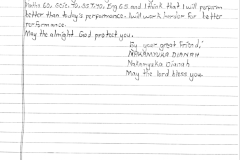 Maths 60, Scie. 70, SST 70, Eng 65. and I think that I will perform
better than today's performance. I will work harder for better
performance.
May the almight God protect you.
By your great friend,
NAKAMYUKA DIANAH
Nakamyuka Dianah
May the lord bless you